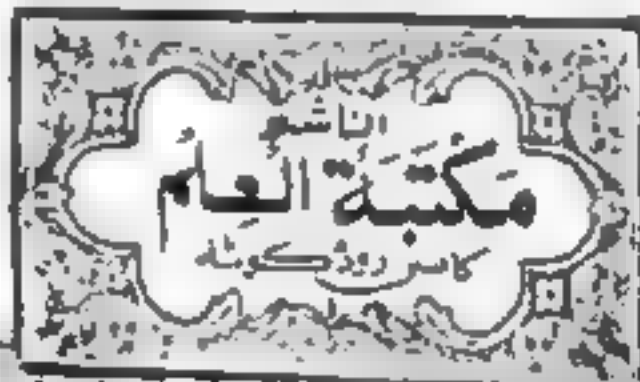 الناشر
مَكْتَبَةُ الْعِلْمِ
كاسی روڈ کوئٹہ